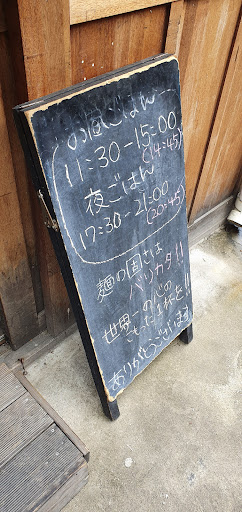 お昼ごはん
11:30-15:00
(14:45)
夜ごはん
17:30-21:00
(20:45)
麺の固さは
バリカタ!!
世界一の心の
こもった1杯を!!
ありがとうございます